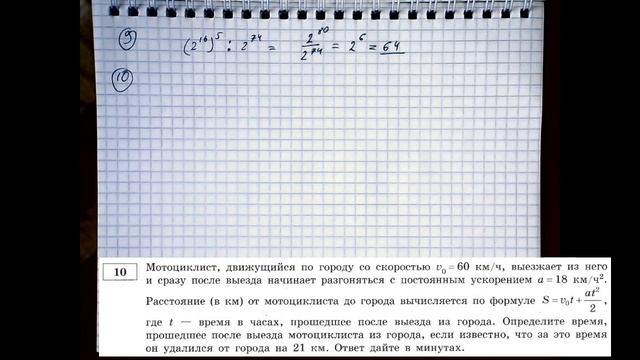 9 (2¹⁶)⁵ : 2⁷⁴ = 2⁸⁰/2⁷⁴ = 2⁶ = 64
10
10 Мотоциклист, движущийся по городу со скоростью v₀ = 60 км/ч, выезжает из него
и сразу после выезда начинает разгоняться с постоянным ускорением a = 18 км/ч².
Расстояние (в км) от мотоциклиста до города вычисляется по формуле S = v₀t + at²/2,
где t — время в часах, прошедшее после выезда из города. Определите время,
прошедшее после выезда мотоциклиста из города, если известно, что за это время
он удалился от города на 21 км. Ответ дайте в минутах.